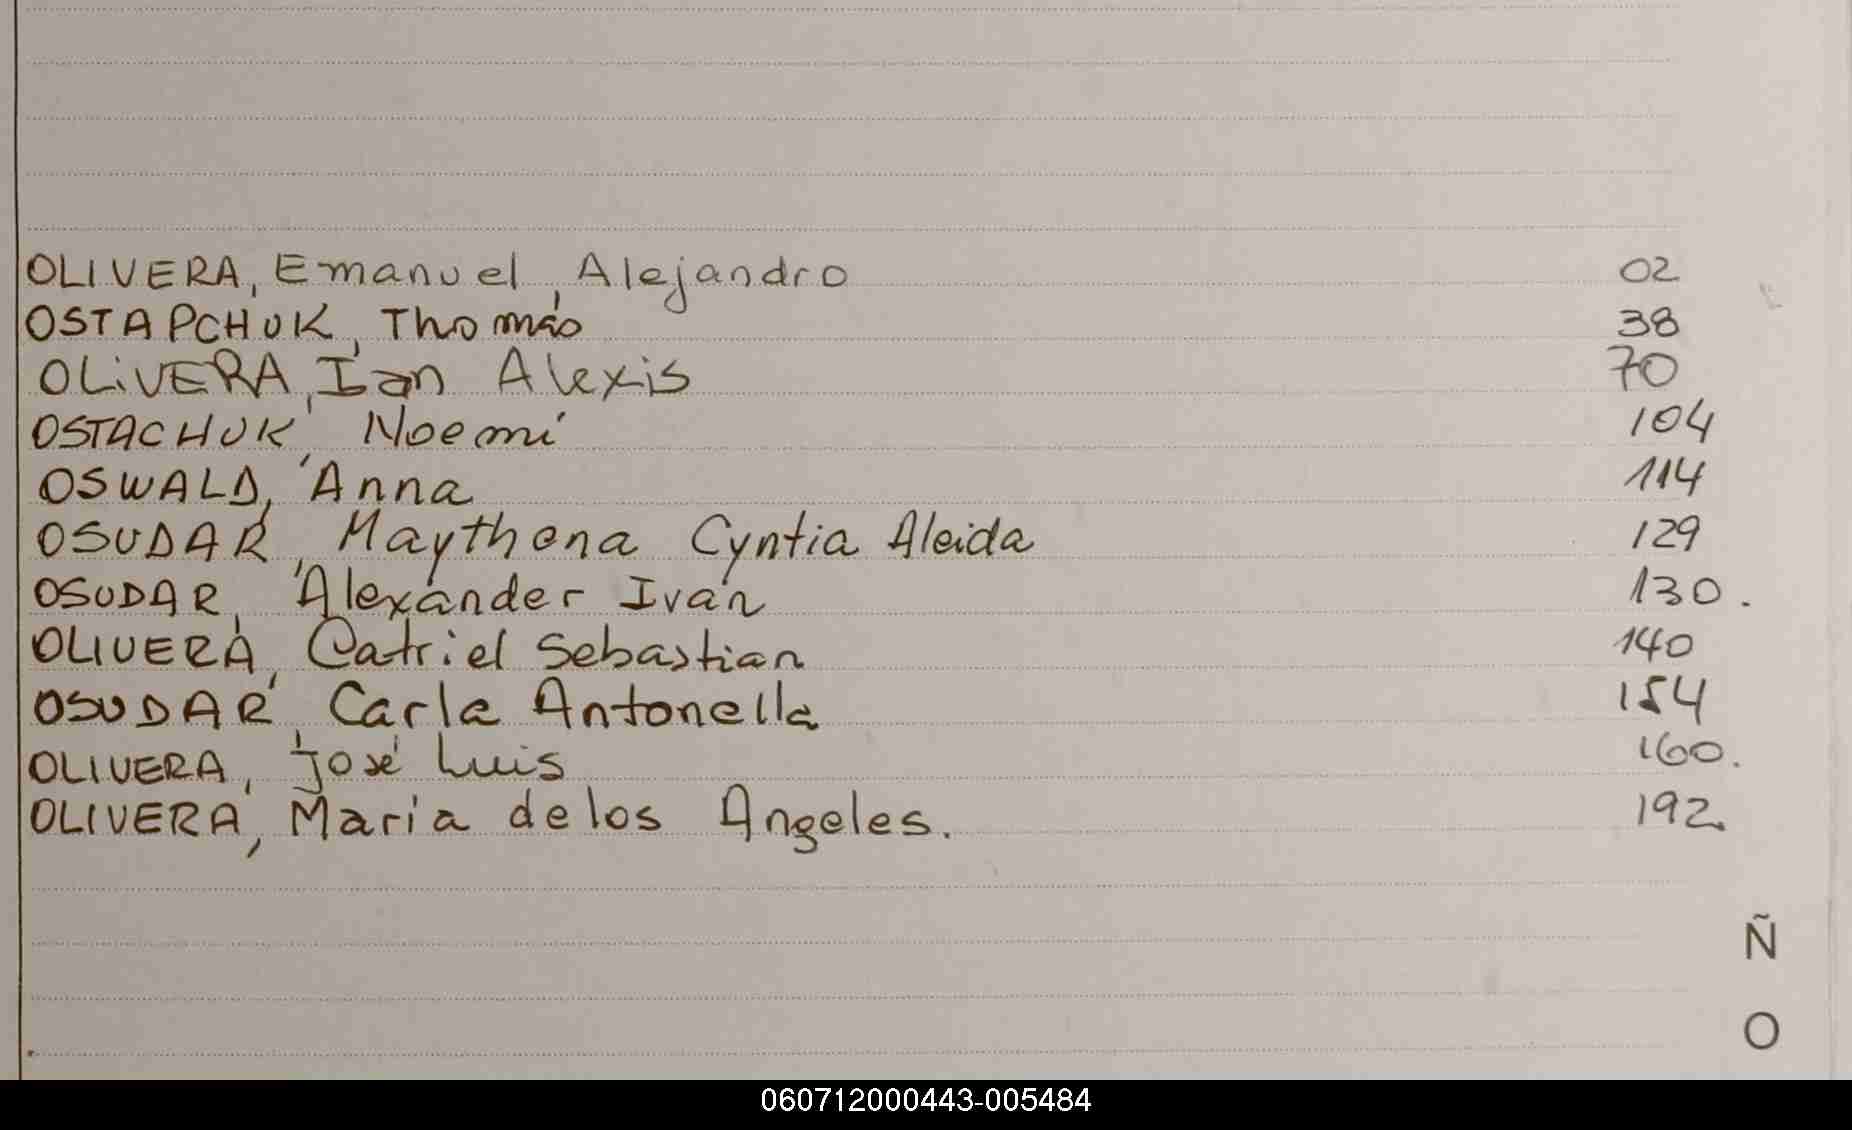 OLIVERA, Emanuel Alejandro 02
OSTAPCHUK, Thomás 38
OLiVERA, Ian Alexis 70
OSTACHUK, Noemí 104
OSWALD, Anna 114
OSUDAR, Maythena Cyntia Aleida 129
OSUDAR, Alexánder Iván 130.
OLIVERA, Catriel Sebastian 140
OSUDAR, Carla Antonella 154
OLIVERA, José Luis 160.
OLIVERA, María de los Angeles. 192.
Ñ
O
060712000443-005484